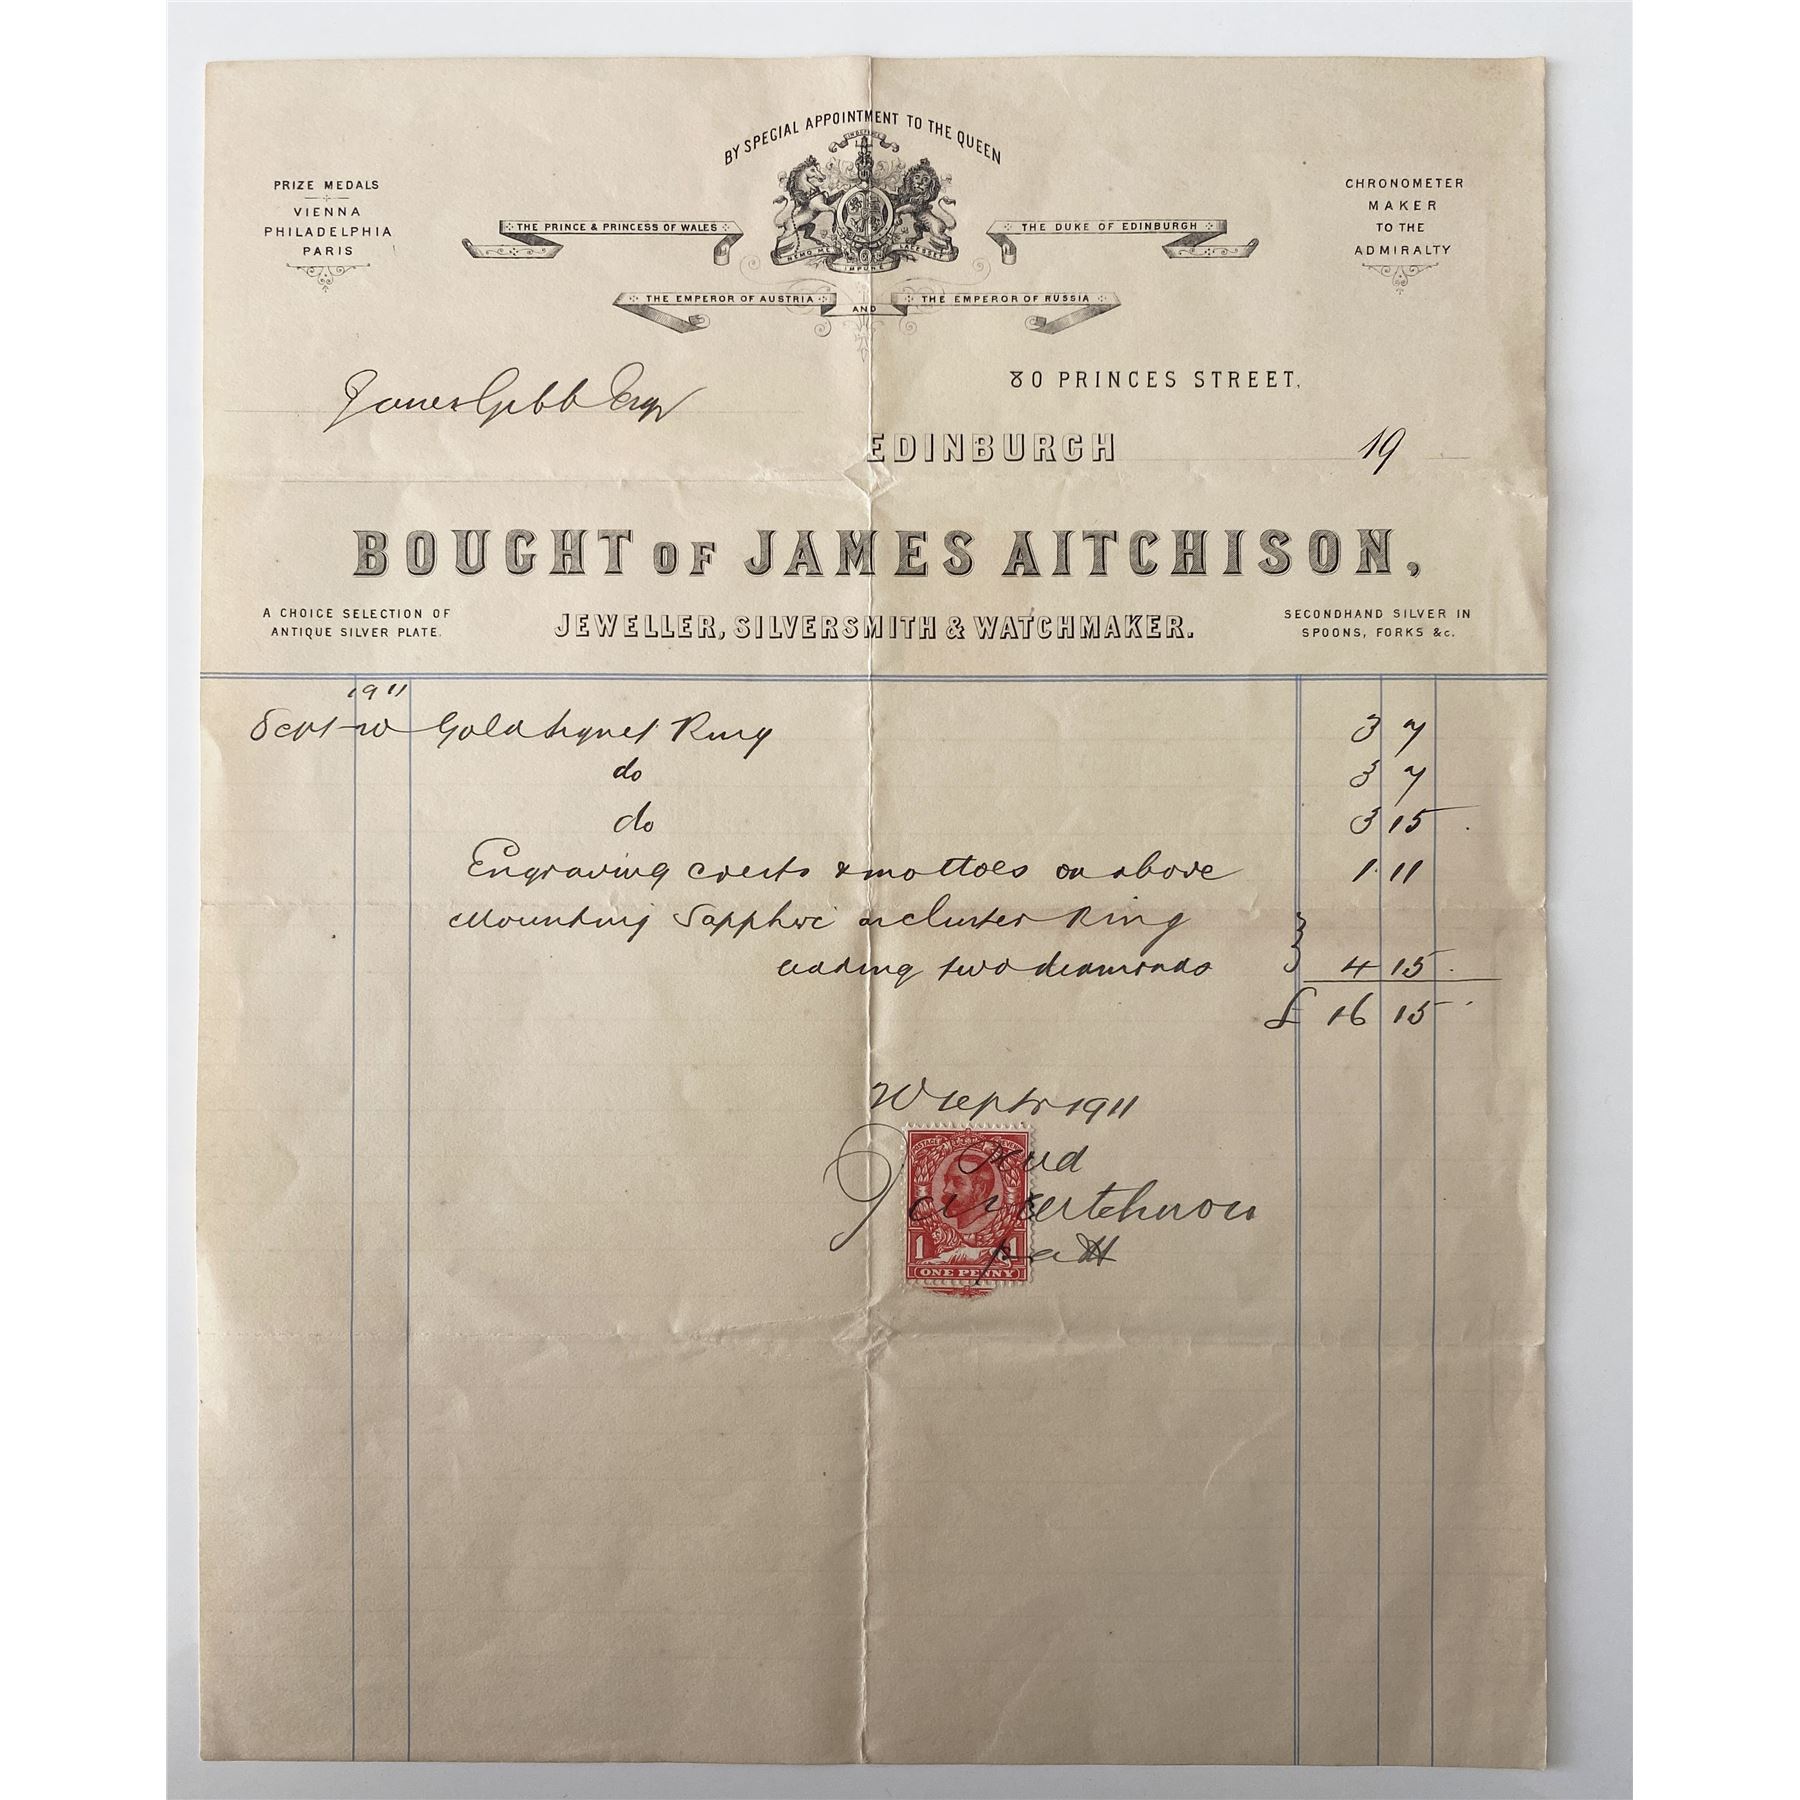 BY SPECIAL APPOINTMENT TO THE QUEEN
IN DEFENCE
PRIZE MEDALS
VIENNA
PHILADELPHIA
PARIS
CHRONOMETER
MAKER
TO THE
ADMIRALTY
THE PRINCE & PRINCESS OF WALES
THE DUKE OF EDINBURGH
NEMO ME IMPUNE LACESSET
THE EMPEROR OF AUSTRIA AND THE EMPEROR OF RUSSIA
80 PRINCES STREET,
James Gibb Esqr
EDINBURGH 19
BOUGHT OF JAMES AITCHISON,
A CHOICE SELECTION OF
ANTIQUE SILVER PLATE.
JEWELLER, SILVERSMITH & WATCHMAKER.
SECONDHAND SILVER IN
SPOONS, FORKS &c.
1911
Sept 20 Gold Signet Ring 3 7
do 3 7
do 3 15
Engraving crests & mottoes on above 1 11
Mounting Sapphire as cluster Ring
adding two diamonds 4 15
£ 16 15
20 Septr 1911
POSTAGE REVENUE
James Aitchison
1 1
ONE PENNY